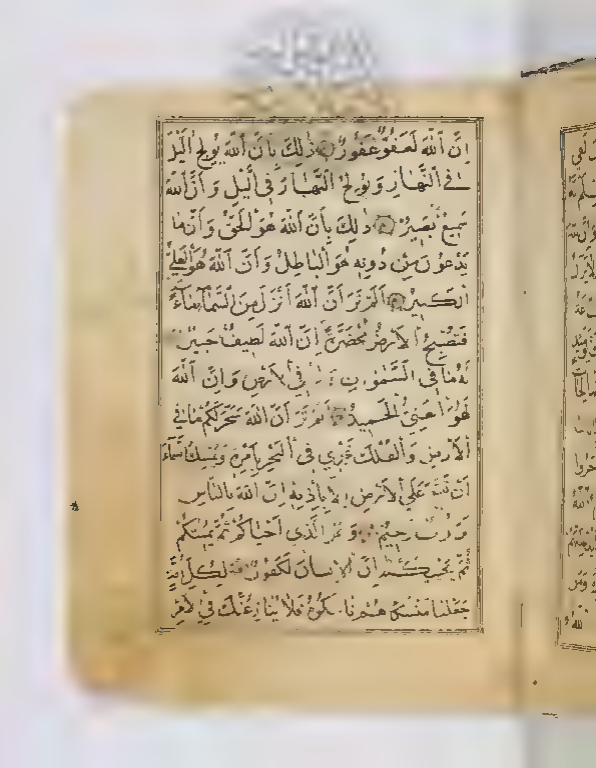 اِنَّ اللّٰهَ لَعَفُوٌّ غَفُورٌ ذٰلِكَ بِاَنَّ اللّٰهَ يُولِجُ الَّيْلَ
فِى النَّهَارِ وَيُولِجُ النَّهَارَ فِى الَّيْلِ وَاَنَّ اللّٰهَ
سَمِيعٌ بَصِيرٌ ذٰلِكَ بِاَنَّ اللّٰهَ هُوَ الْحَقُّ وَاَنَّ مَا
يَدْعُونَ مِنْ دُونِهِ هُوَ الْبَاطِلُ وَاَنَّ اللّٰهَ هُوَ الْعَلِىُّ
الْكَبِيرُ اَلَمْ تَرَ اَنَّ اللّٰهَ اَنْزَلَ مِنَ السَّمَاءِ مَاءً
فَتُصْبِحُ الْاَرْضُ مُخْضَرَّةً اِنَّ اللّٰهَ لَطِيفٌ خَبِيرٌ
لَهُ مَا فِى السَّمٰوَاتِ فِى الْاَرْضِ وَاِنَّ اللّٰهَ
لَهُوَ الْغَنِىُّ الْحَمِيدُ اَلَمْ تَرَ اَنَّ اللّٰهَ سَخَّرَ لَكُمْ مَا فِى
الْاَرْضِ وَالْفُلْكَ تَجْرِى فِى الْبَحْرِ بِاَمْرِهِ وَيُمْسِكُ السَّمَاءَ
اَنْ تَقَعَ عَلَى الْاَرْضِ اِلَّا بِاِذْنِهِ اِنَّ اللّٰهَ بِالنَّاسِ
لَرَؤُفٌ رَحِيمٌ وَهُوَ الَّذِى اَحْيَاكُمْ ثُمَّ يُمِيتُكُمْ
ثُمَّ يُحْيِيكُمْ اِنَّ الْاِنْسَانَ لَكَفُورٌ لِكُلِّ اُمَّةٍ
جَعَلْنَا مَنْسَكًا هُمْ نَاسِكُوهُ فَلَا يُنَازِعُنَّكَ فِى الْاَمْرِ